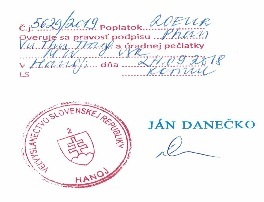 Č.j. 5629/2019 Poplatok 20EUR
Overuje sa pravosť podpisu Phan
Vu Thu a úradnej pečiatky
V Hanoji dňa 24.09.2018
LS
JÁN DANEČKO
VEĽVYSLANECTVO SLOVENSKEJ REPUBLIKY
HANOJ